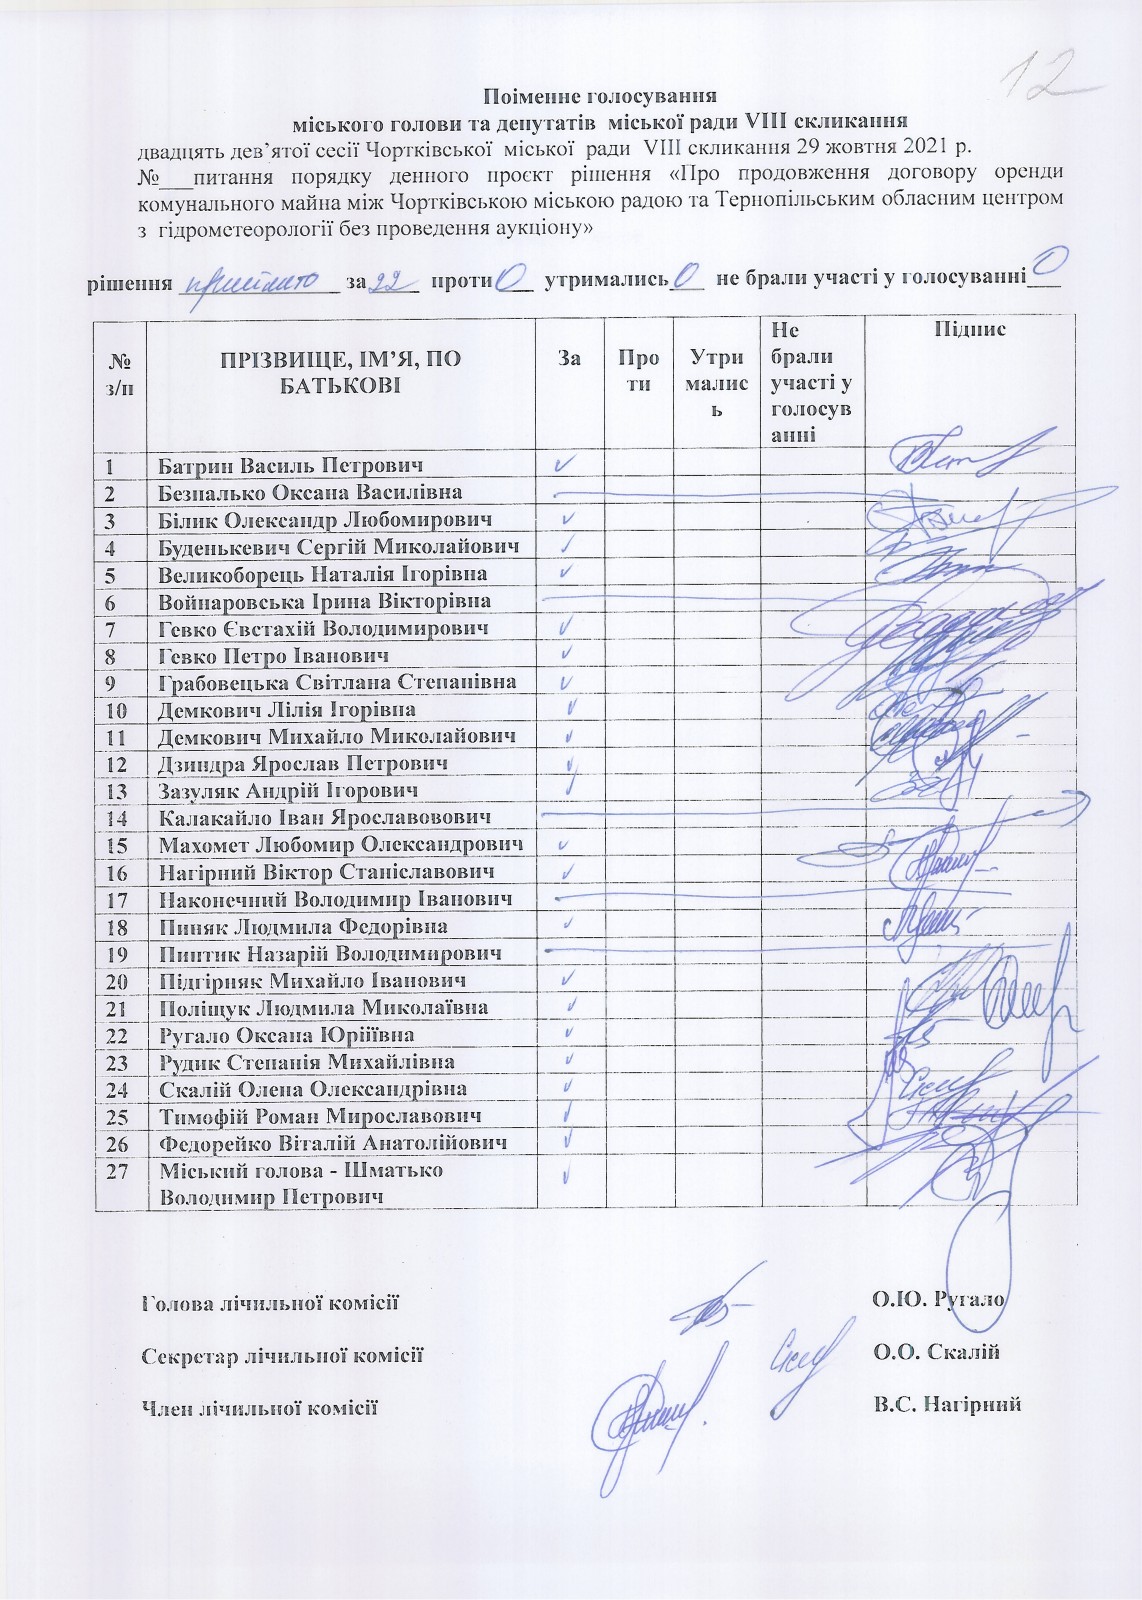 12
Поіменне голосування
міського голови та депутатів міської ради VIII скликання
двадцять дев’ятої сесії Чортківської міської ради VIII скликання 29 жовтня 2021 р.
№___питання порядку денного проєкт рішення «Про продовження договору оренди
комунального майна між Чортківською міською радою та Тернопільським обласним центром
з гідрометеорології без проведення аукціону»
рішення прийнято за 22 проти 0 утримались 0 не брали участі у голосуванні 0
№ з/п ПРІЗВИЩЕ, ІМ’Я, ПО БАТЬКОВІ За Проти Утрималис ь Не брали участі у голосуванні Підпис
1 Батрин Василь Петрович ✓
2 Безпалько Оксана Василівна
3 Білик Олександр Любомирович ✓
4 Буденькевич Сергій Миколайович ✓
5 Великоборець Наталія Ігорівна ✓
6 Войнаровська Ірина Вікторівна
7 Гевко Євстахій Володимирович ✓
8 Гевко Петро Іванович ✓
9 Грабовецька Світлана Степанівна ✓
10 Демкович Лілія Ігорівна ✓
11 Демкович Михайло Миколайович ✓
12 Дзиндра Ярослав Петрович ✓
13 Зазуляк Андрій Ігорович ✓
14 Калакайло Іван Ярославовович
15 Махомет Любомир Олександрович ✓
16 Нагірний Віктор Станіславович ✓
17 Наконечний Володимир Іванович
18 Пиняк Людмила Федорівна ✓
19 Пиптик Назарій Володимирович
20 Підгірняк Михайло Іванович ✓
21 Поліщук Людмила Миколаївна ✓
22 Ругало Оксана Юріїївна ✓
23 Рудик Степанія Михайлівна ✓
24 Скалій Олена Олександрівна ✓
25 Тимофій Роман Мирославович ✓
26 Федорейко Віталій Анатолійович ✓
27 Міський голова - Шматько ✓
Володимир Петрович
Голова лічильної комісії О.Ю. Ругало
Секретар лічильної комісії О.О. Скалій
Член лічильної комісії В.С. Нагірний